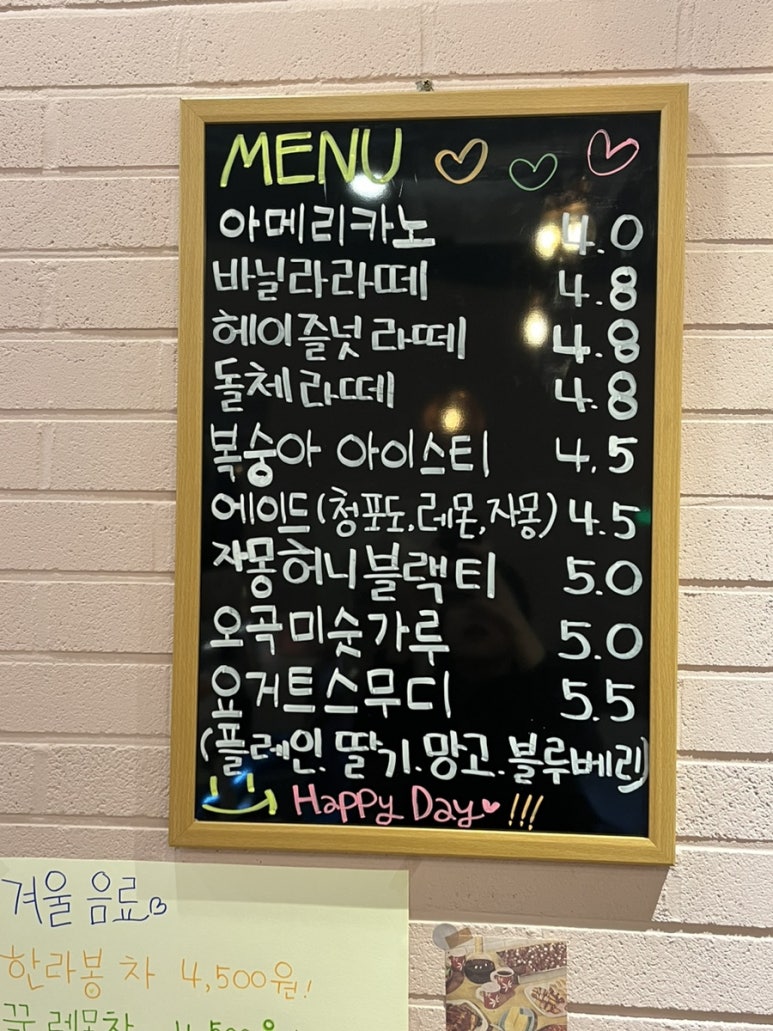 MENU
아메리카노 4.0
바닐라라떼 4.8
헤이즐넛 라떼 4.8
돌체라떼 4.8
복숭아 아이스티 4.5
에이드(청포도,레몬,자몽) 4.5
자몽허니블랙티 5.0
오곡미숫가루 5.0
요거트스무디 5.5
(플레인.딸기.망고.블루베리)
Happy Day !!!
겨울 음료
한라봉 차 4,500원!